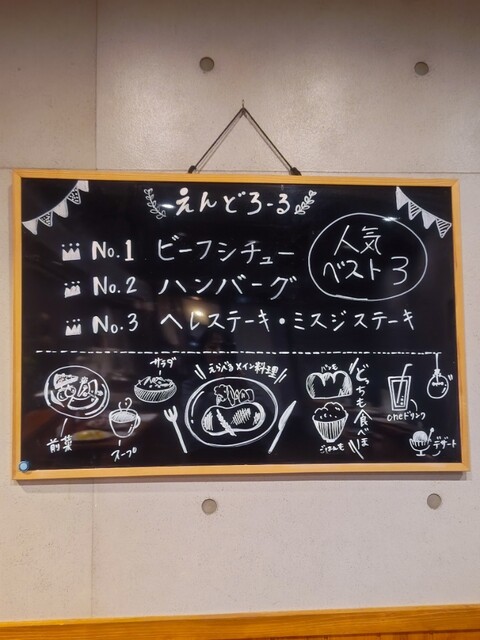 えんどろーる
人気
ベスト3
No.1 ビーフシチュー
No.2 ハンバーグ
No.3 ヘレステーキ・ミスジステーキ
前菜
スープ
サラダ
えらべるメイン料理
パンも
ごはんも
どっちも食べ放
oneドリンク
デザート